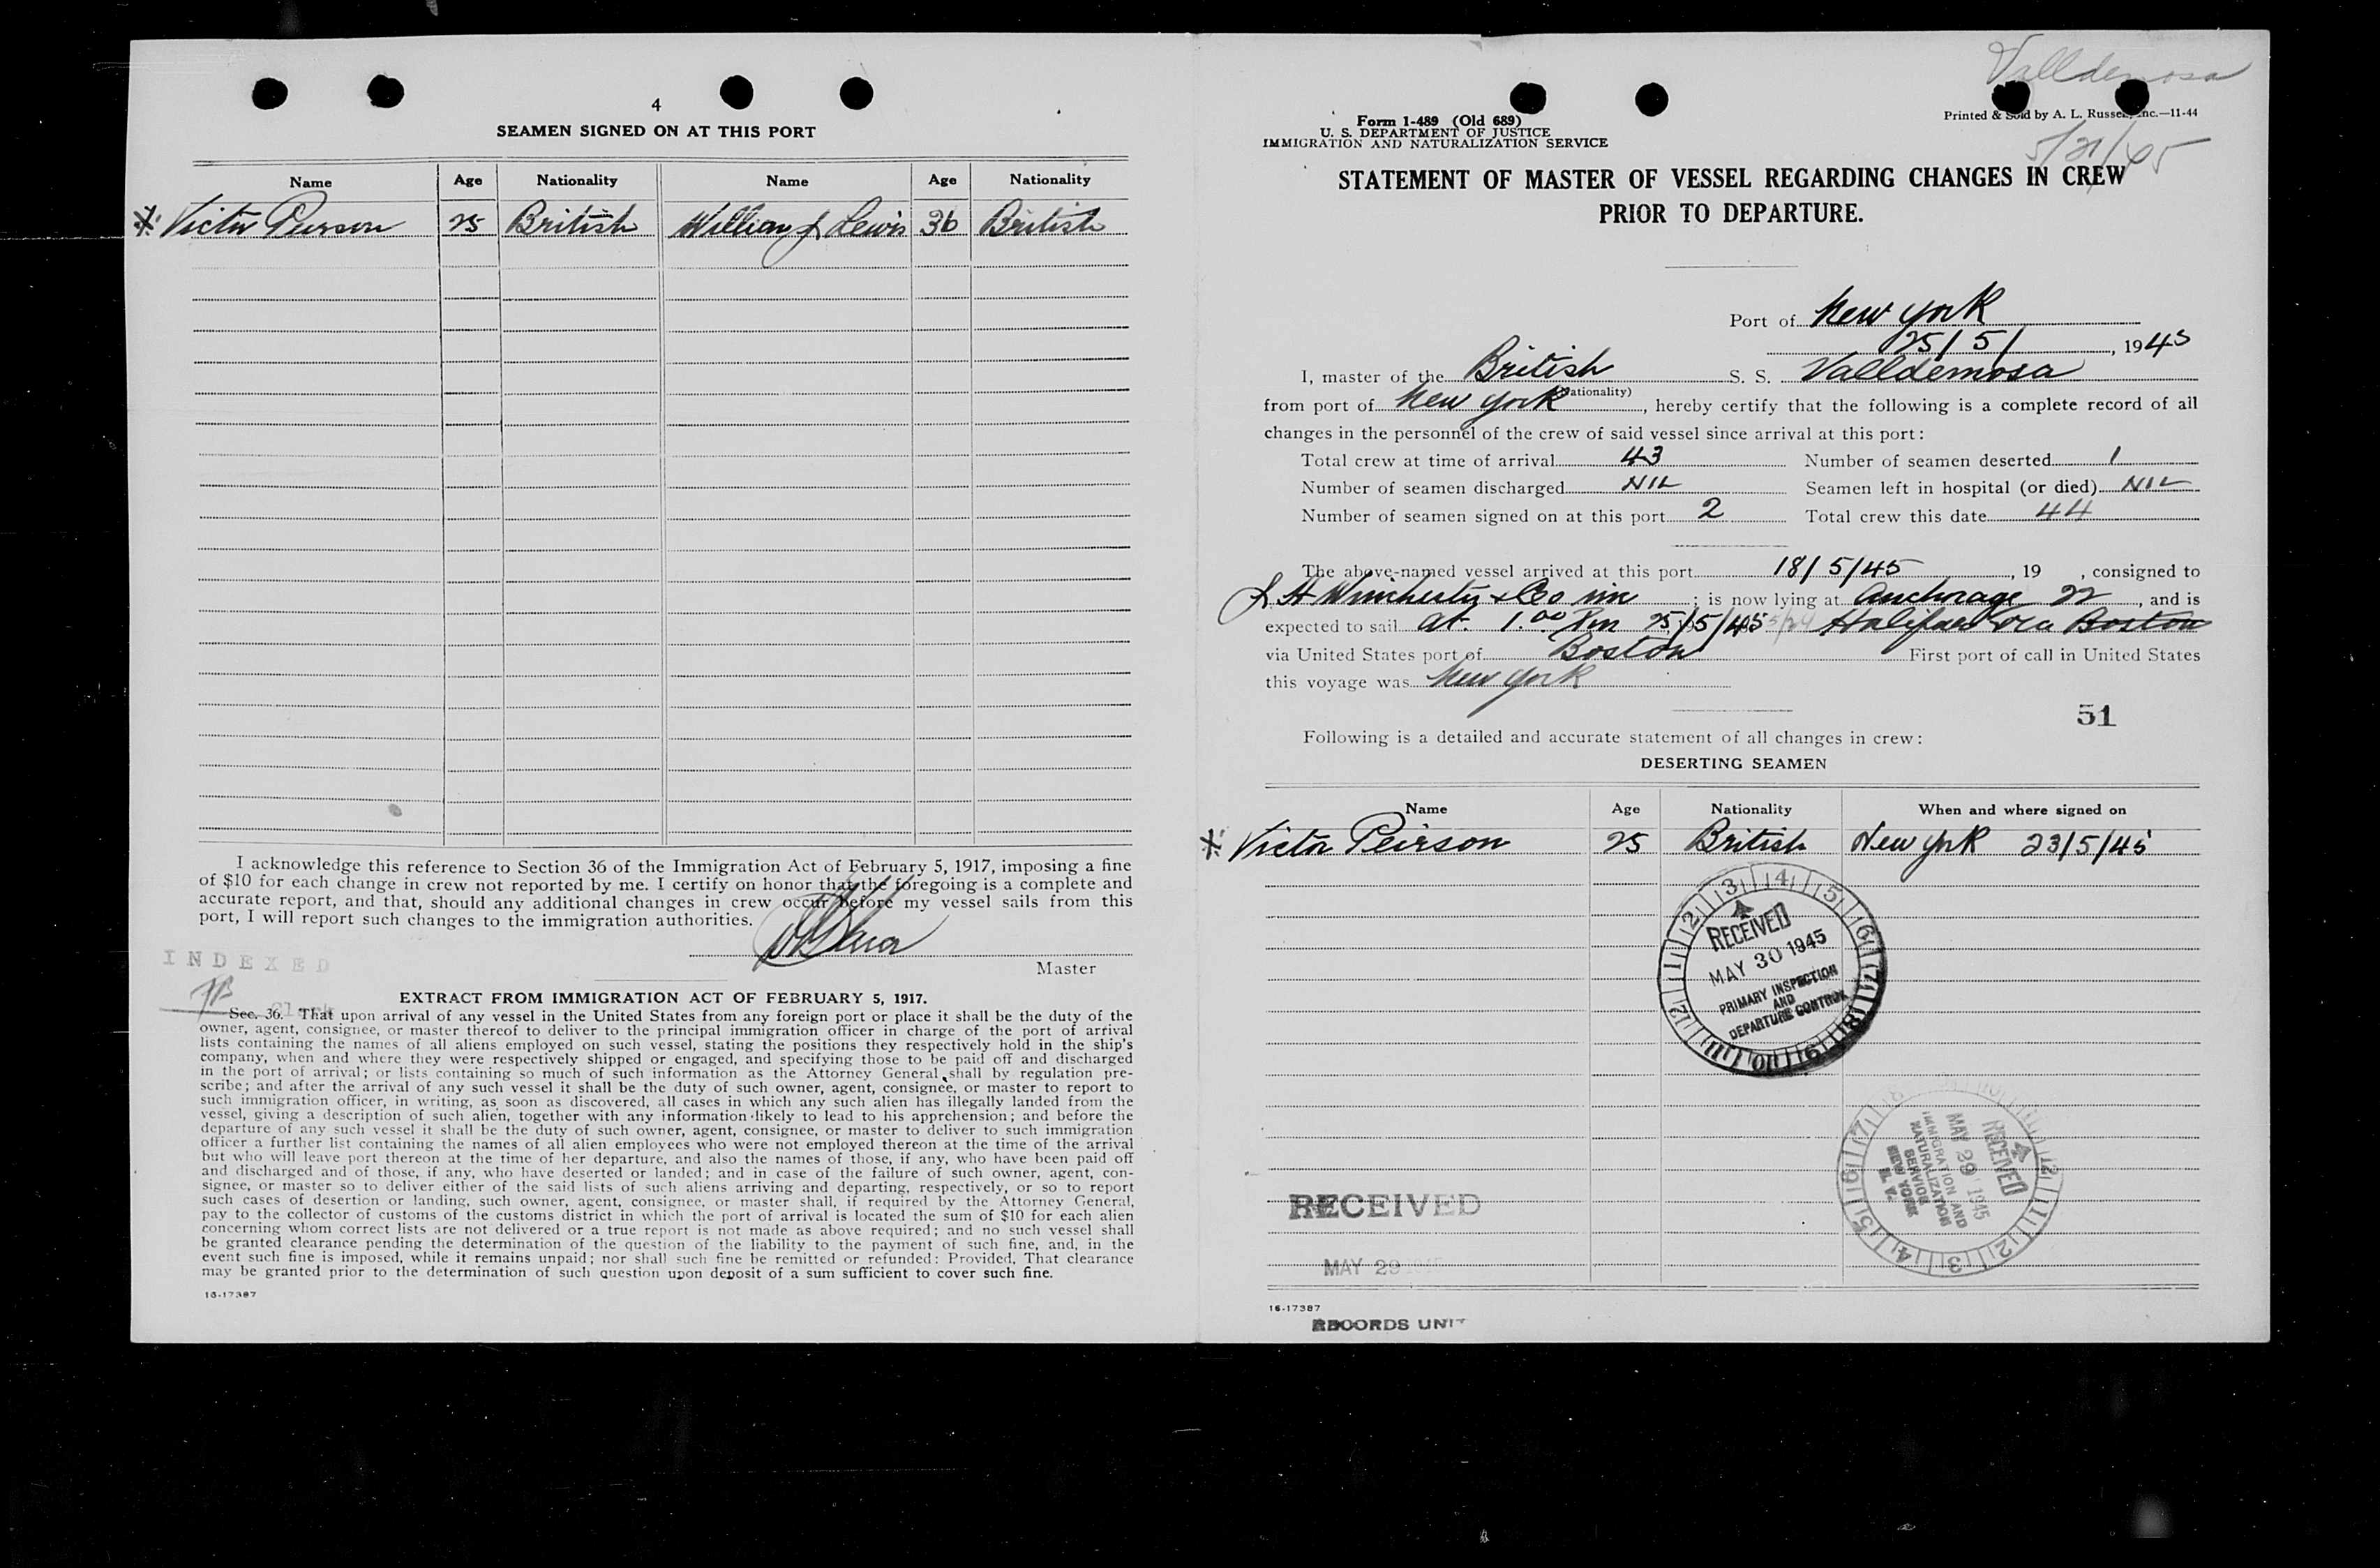 4
SEAMEN SIGNED ON AT THIS PORT
Name Age Nationality Name Age Nationality
* Victor Peirson 25 British William J Lewis 36 British
I acknowledge this reference to Section 36 of the Immigration Act of February 5, 1917, imposing a fine
of $10 for each change in crew not reported by me. I certify on honor that the foregoing is a complete and
accurate report, and that, should any additional changes in crew occur before my vessel sails from this
port, I will report such changes to the immigration authorities.
Master
INDEXED
EXTRACT FROM IMMIGRATION ACT OF FEBRUARY 5, 1917.
Sec. 36. That upon arrival of any vessel in the United States from any foreign port or place it shall be the duty of the
owner, agent, consignee, or master thereof to deliver to the principal immigration officer in charge of the port of arrival
lists containing the names of all aliens employed on such vessel, stating the positions they respectively hold in the ship's
company, when and where they were respectively shipped or engaged, and specifying those to be paid off and discharged
in the port of arrival; or lists containing so much of such information as the Attorney General shall by regulation pre-
scribe; and after the arrival of any such vessel it shall be the duty of such owner, agent, consignee, or master to report to
such immigration officer, in writing, as soon as discovered, all cases in which any such alien has illegally landed from the
vessel, giving a description of such alien, together with any information likely to lead to his apprehension; and before the
departure of any such vessel it shall be the duty of such owner, agent, consignee, or master to deliver to such immigration
officer a further list containing the names of all alien employees who were not employed thereon at the time of the arrival
but who will leave port thereon at the time of her departure, and also the names of those, if any, who have been paid off
and discharged and of those, if any, who have deserted or landed; and in case of the failure of such owner, agent, con-
signee, or master so to deliver either of the said lists of such aliens arriving and departing, respectively, or so to report
such cases of desertion or landing, such owner, agent, consignee, or master shall, if required by the Attorney General,
pay to the collector of customs of the customs district in which the port of arrival is located the sum of $10 for each alien
concerning whom correct lists are not delivered or a true report is not made as above required; and no such vessel shall
be granted clearance pending the determination of the question of the liability to the payment of such fine, and, in the
event such fine is imposed, while it remains unpaid; nor shall such fine be remitted or refunded: Provided, That clearance
may be granted prior to the determination of such question upon deposit of a sum sufficient to cover such fine.
16-17387
Valldemosa
Form 1-489 (Old 689)
U. S. DEPARTMENT OF JUSTICE
IMMIGRATION AND NATURALIZATION SERVICE
Printed & Sold by A. L. Russell, Inc.—11-44
STATEMENT OF MASTER OF VESSEL REGARDING CHANGES IN CREW
PRIOR TO DEPARTURE.
Port of New York
25/5/, 1945
I, master of the British S. S. Valldemosa
(Nationality)
from port of New York, hereby certify that the following is a complete record of all
changes in the personnel of the crew of said vessel since arrival at this port:
Total crew at time of arrival 43 Number of seamen deserted 1
Number of seamen discharged NIL Seamen left in hospital (or died) NIL
Number of seamen signed on at this port 2 Total crew this date 44
The above-named vessel arrived at this port 18/5/45, 19 , consigned to
J H Winchester & Co inc; is now lying at Anchorage 22, and is
expected to sail at 1.00 Pm 25/5/45 Halifax via Boston
via United States port of Boston First port of call in United States
this voyage was New York
51
Following is a detailed and accurate statement of all changes in crew:
DESERTING SEAMEN
Name Age Nationality When and where signed on
* Victor Peirson 25 British New York 23/5/45
RECEIVED
MAY 30 1945
PRIMARY INSPECTION
AND
DEPARTURE CONTROL
RECEIVED
MAY 29 1945
IMMIGRATION AND
NATURALIZATION
SERVICE
NEW YORK
N. Y.
RECEIVED
MAY 29 1945
16-17387
RECORDS UNIT